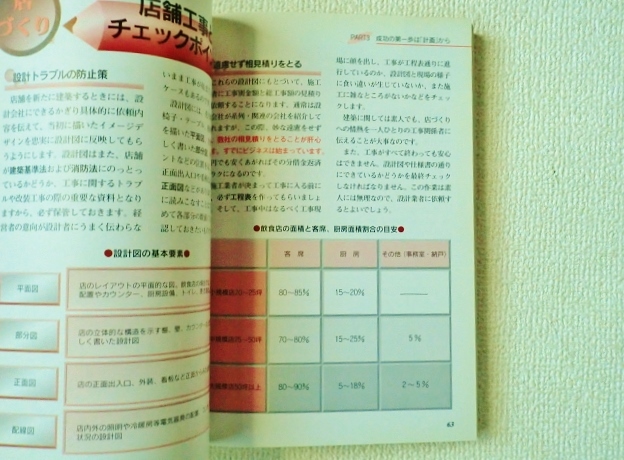 店
づくり
店舗工事
チェックポイ
設計トラブルの防止策
店舗を新たに建築するときには、設
計会社にできるかぎり具体的に依頼内
容を伝えて、当初に描いたイメージデ
ザインを忠実に設計図に反映してもら
うようにします。設計図はまた、店舗
が建築基準法および消防法にのっとっ
ているかどうか、工事に関するトラブ
ルや改装工事の際の重要な資料となり
ますから、必ず保管しておきます。経
営者の意向が設計者にうまく伝わらな
いまま工事が
ケースもあるので
設計図は、
椅子・テーブル
を描いた平面
しく書いた部分
ントなどの位置
正面出入口や
正面図などがあ
に読みこなすこと
めて各部分の
認しておきたい
●設計図の基本要素●
平面図
店のレイアウトの平面的な図。飲食店の
配置やカウンター、厨房設備、トイレ、
部分図
店の立体的な構造を示す
しく書いた設計図
正面図
店の正面出入口、外装、看板など正面から
配線図
店内外の照明や冷暖房等電気器具の配置
状況の設計図
PART3 成功の第一歩は「計画」から
遠慮せず相見積りをとる
これらの設計図にもとづいて、施工
者に工事金額と総工事額の見積り
依頼することになります。通常は設
会社が系列・関連の会社を紹介して
れますが、この際、妙な遠慮をせず
、他社の相見積りをとることが肝心
す。すでにビジネスは始まっています。
円でも安くあがればその分借金返済
ラクになるのです。
施工業者が決まって工事に入る前に
、必ず工程表を作ってもらいましょ
。そして、工事中はなるべく工事現
場に顔を出し、工事が工程表通りに進
行しているのか、設計図と現場の様子
に食い違いが生じていないか、また施
工に雑なところがないかなどをチェッ
クします。
建築に関しては素人でも、店づくり
への情熱を一人ひとりの工事関係者に
伝えることが大事なのです。
また、工事がすべて終わっても安心
はできません。設計図や仕様書の通り
にできているかどうかを最終チェック
しなければなりません。この作業は素
人には無理なので、設計業者に依頼す
るとよいでしょう。
●飲食店の面積と客席、厨房面積割合の目安●
客 席 厨 房 その他（事務室・納戸）
80〜85% 15〜20% ——
70〜80% 15〜25% 5%
80〜90% 5〜18% 2〜5%
63